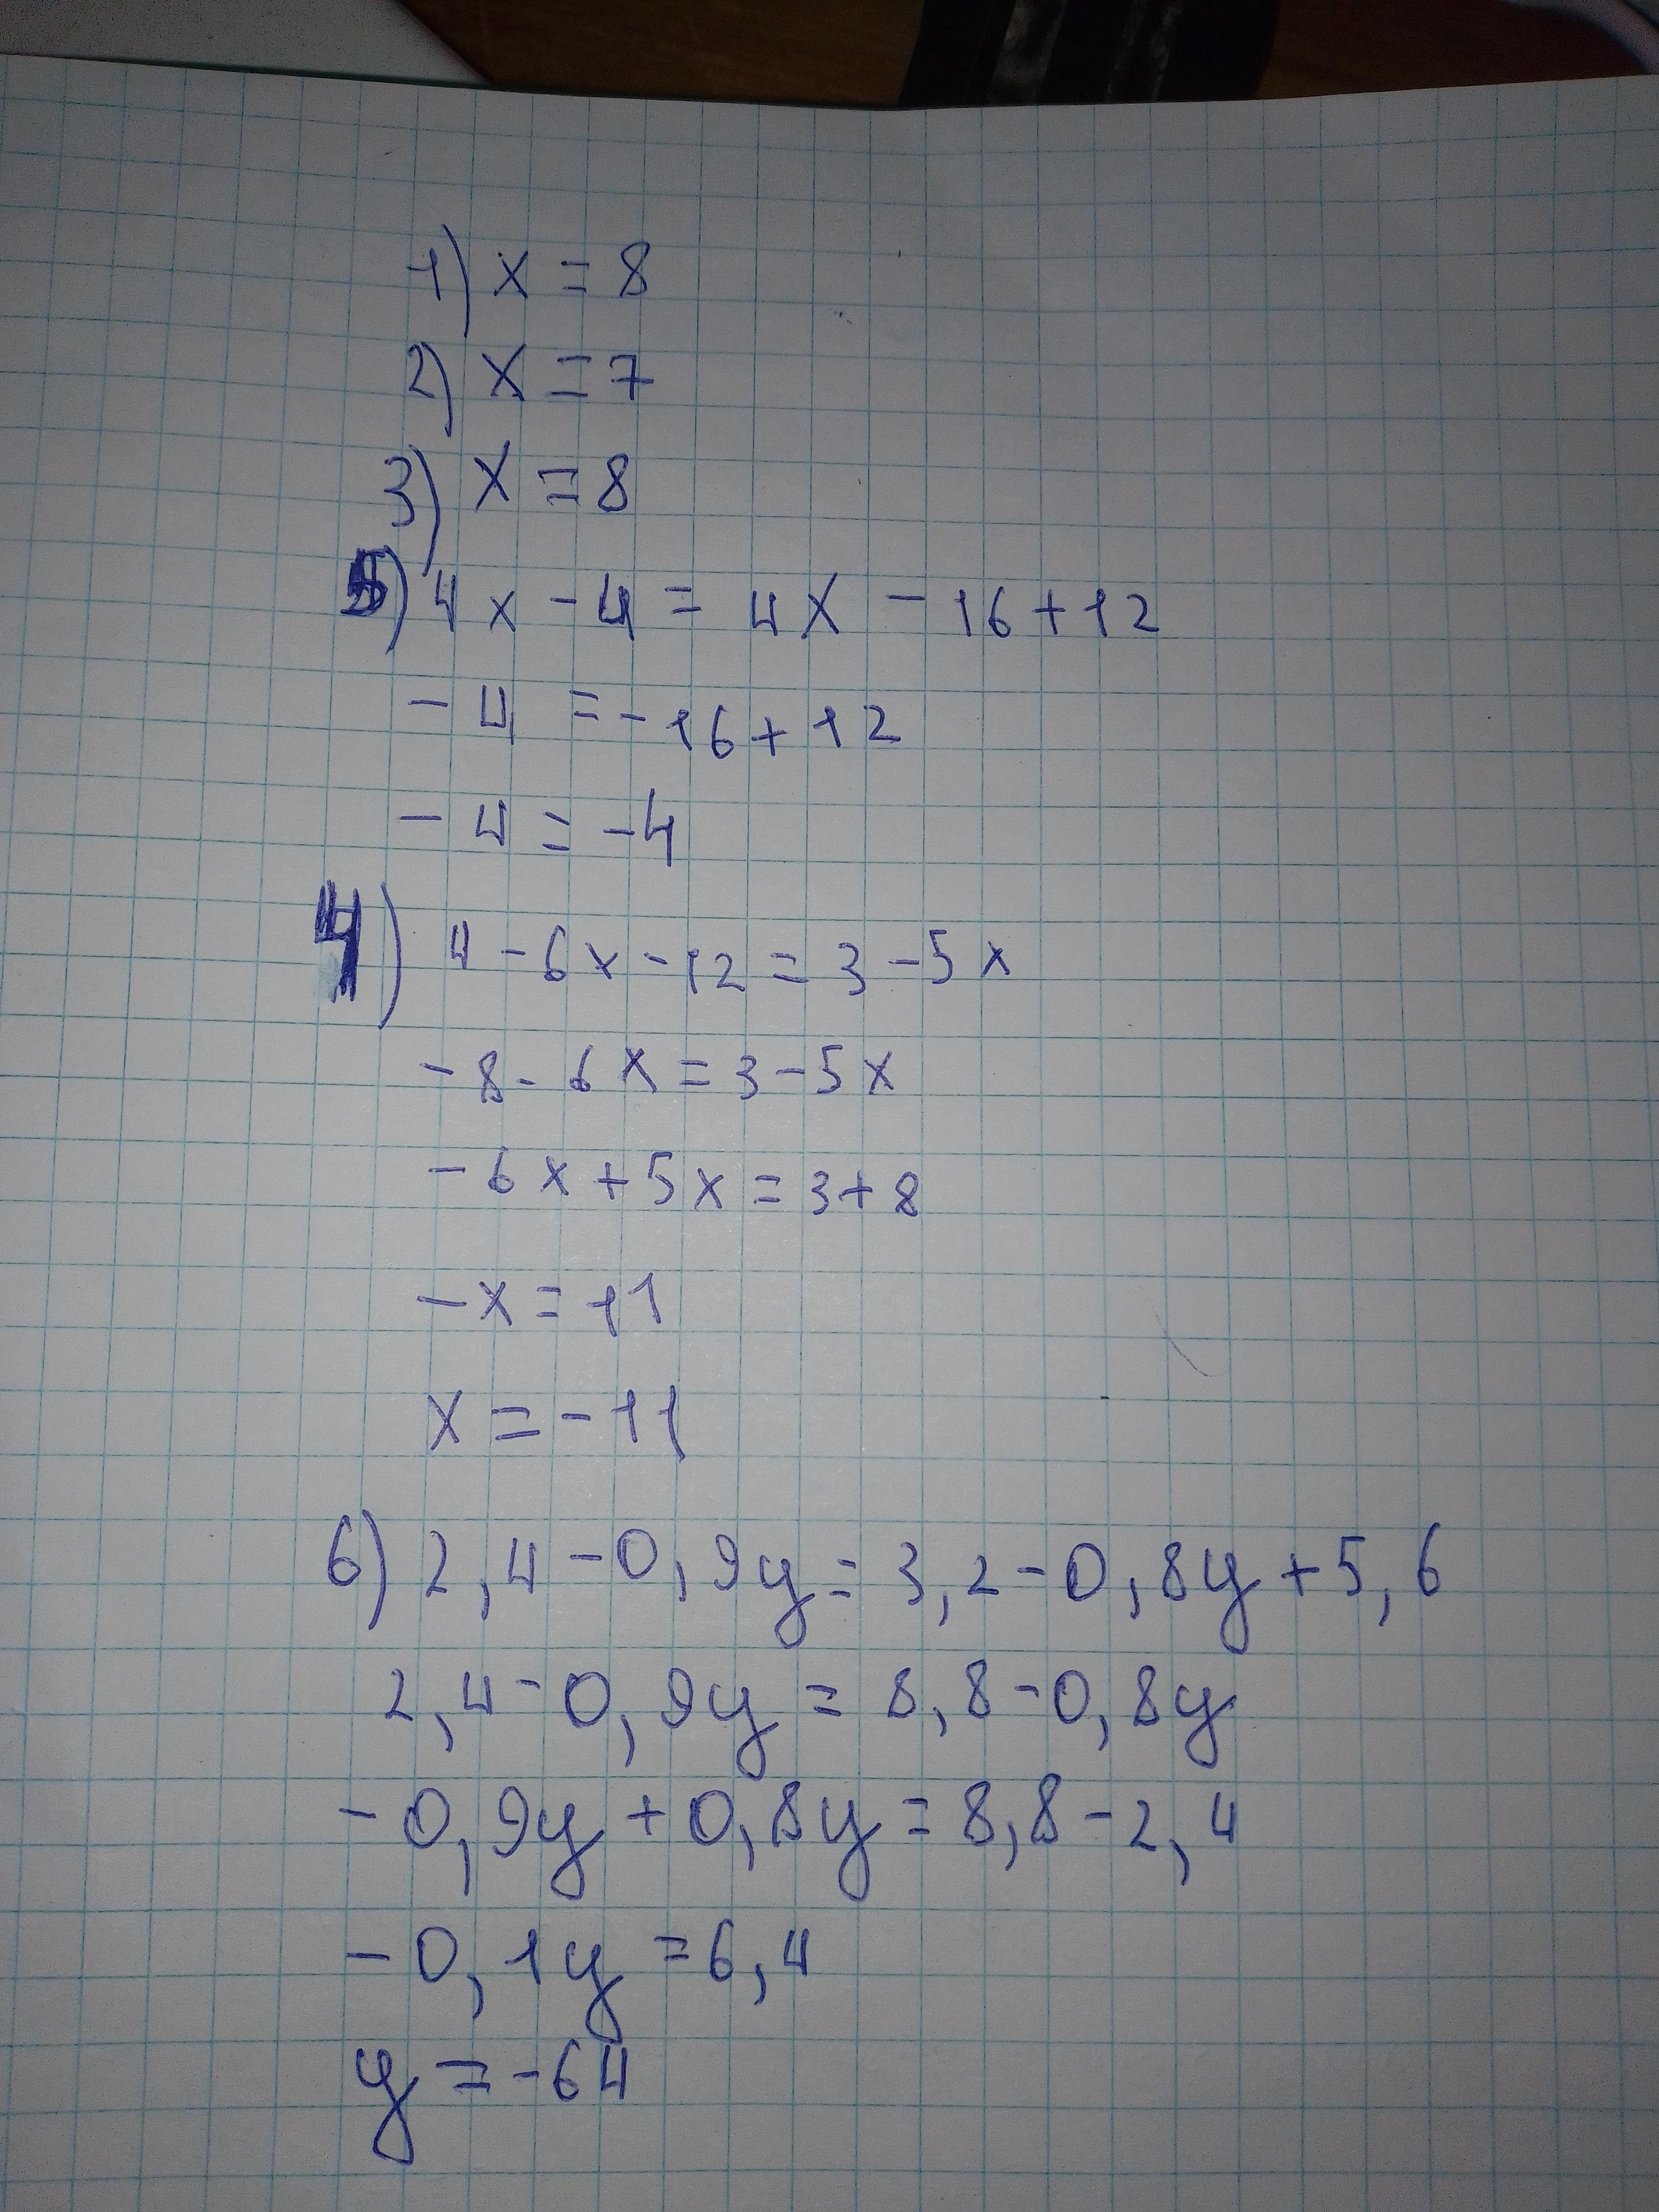 1) x = 8
2) x = 7
3) x = 8
5) 4x - 4 = 4x - 16 + 12
- 4 = - 16 + 12
- 4 = - 4
4) 4 - 6x - 12 = 3 - 5x
- 8 - 6x = 3 - 5x
- 6x + 5x = 3 + 8
- x = 11
x = - 11
6) 2,4 - 0,9y = 3,2 - 0,8y + 5,6
2,4 - 0,9y = 8,8 - 0,8y
- 0,9y + 0,8y = 8,8 - 2,4
- 0,1y = 6,4
y = - 64